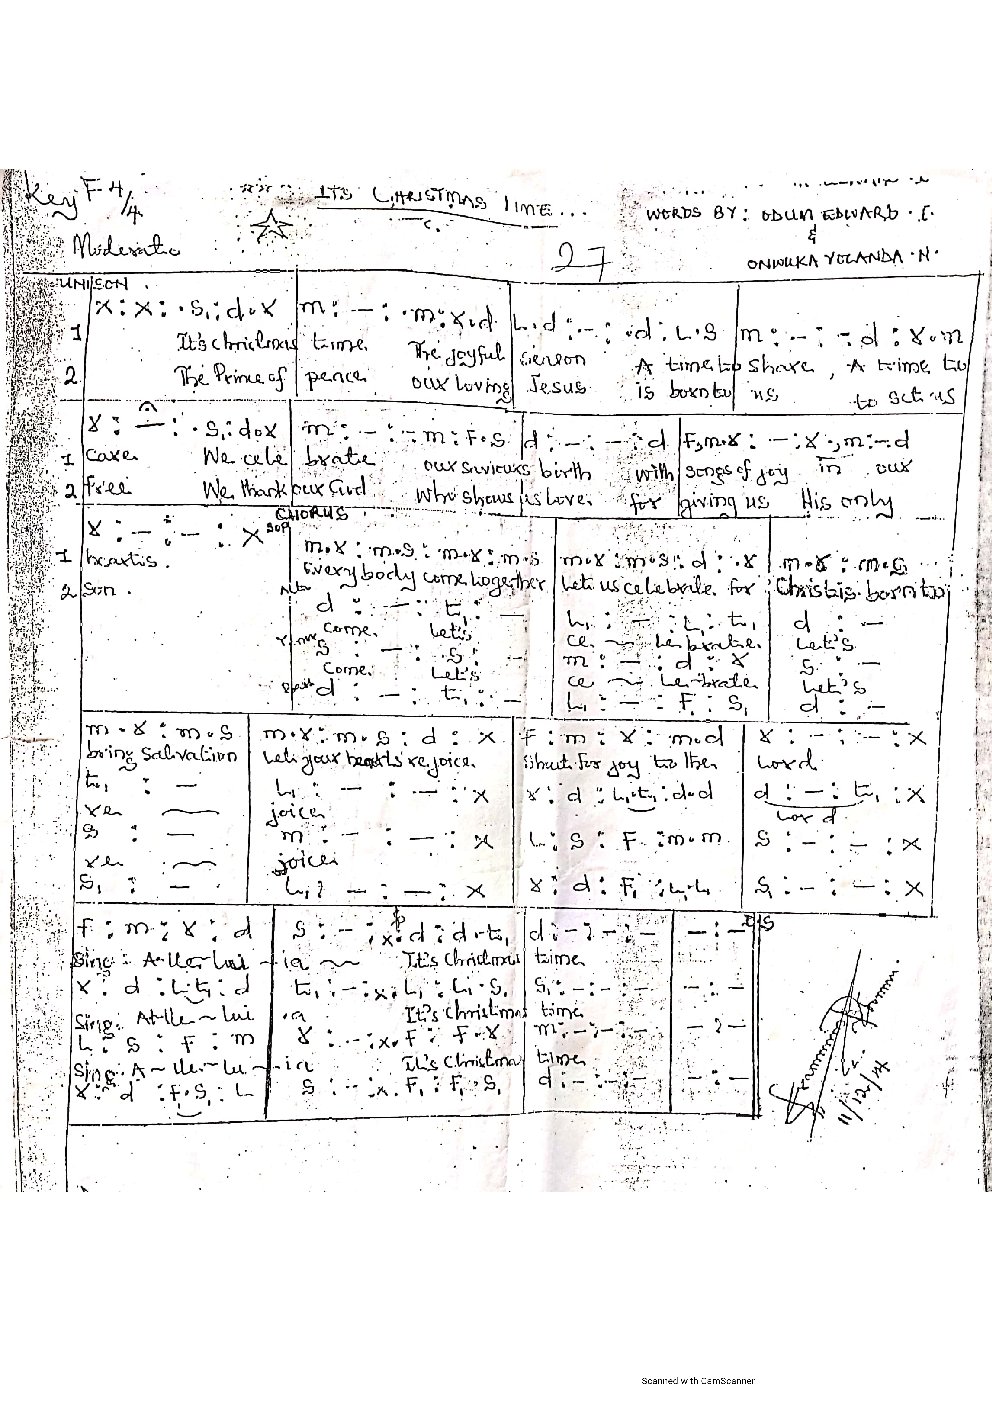 Key F 4/4
ITS CHRISTMAS TIME...
WORDS BY: ODUM EDWARD .E.
&
Moderato
27
ONWUKA YOLANDA .N.
UNISON.
x : x : . s, : d . x | m : — : . m : x . d | L . d : — : . d : L . S | m : — : — d : x . m
1 It's christmas time The joyful season A time to share , A time to
2 The Prince of peace our loving Jesus is born to us to set us
x : — : . s, : d o x | m : — : — m : F . S | d : — : — : d | F, m . x : — : x . , m : — d
1 care We cele brate our saviours birth with songs of joy in our
2 free We thank our God who shows us love for giving us His only
CHORUS
x : — : — : x
SOP
m . x : m . s : m . x : m . s | m . x : m . s : d : . x | m . x : m . s
1 hearts. Everybody come together Let us celebrate for Christ is born to
2 Son.
Alto
d : — : t, : — | L, : — : L, : t, | d : —
come Let's ce ~ le brate Let's
S : — : S : — | m : — : d : x | S : —
Come Let's ce ~ le-brate Let's
d : — : t, : — | L, : — : F, : S, | d : —
m . x : m . s | m . x : m . s : d : x | F : m : x : m . d | x : — : — : x
bring Salvation Let your hearts rejoice Shout for joy to the Lord
t, : — | L, : — : — : x | x : d : L, . t, : d . d | d : — : t, : x
re joice Lord
S : — | m : — : — : x | L : S : F : m . m | S : — : — : x
re joice
S, : — | L, : — : — : x | x : d : F, : L, . L, | S, : — : — : x
D/S
f : m : x : d | S : — : x . d : d . t, | d : — : — : — | — : —
Sing : A-lle-lui - ia ~ It's Christmas time
x : d : L, . t, : d | t, : — : x . L, : L, . S, | S, : — : — : — | — : —
Sing : A-lle ~ lui ia It's Christmas time
L : S : F : m | x : — : x . F : F . x | m : — : — : — | — : —
Sing : A ~ lle ~ lu ~ ia It's Christmas time
x : d : f, . S, : L, | S : — : x . F, : F, . S, | d : — : — : — | — : —
Scanned with CamScanner